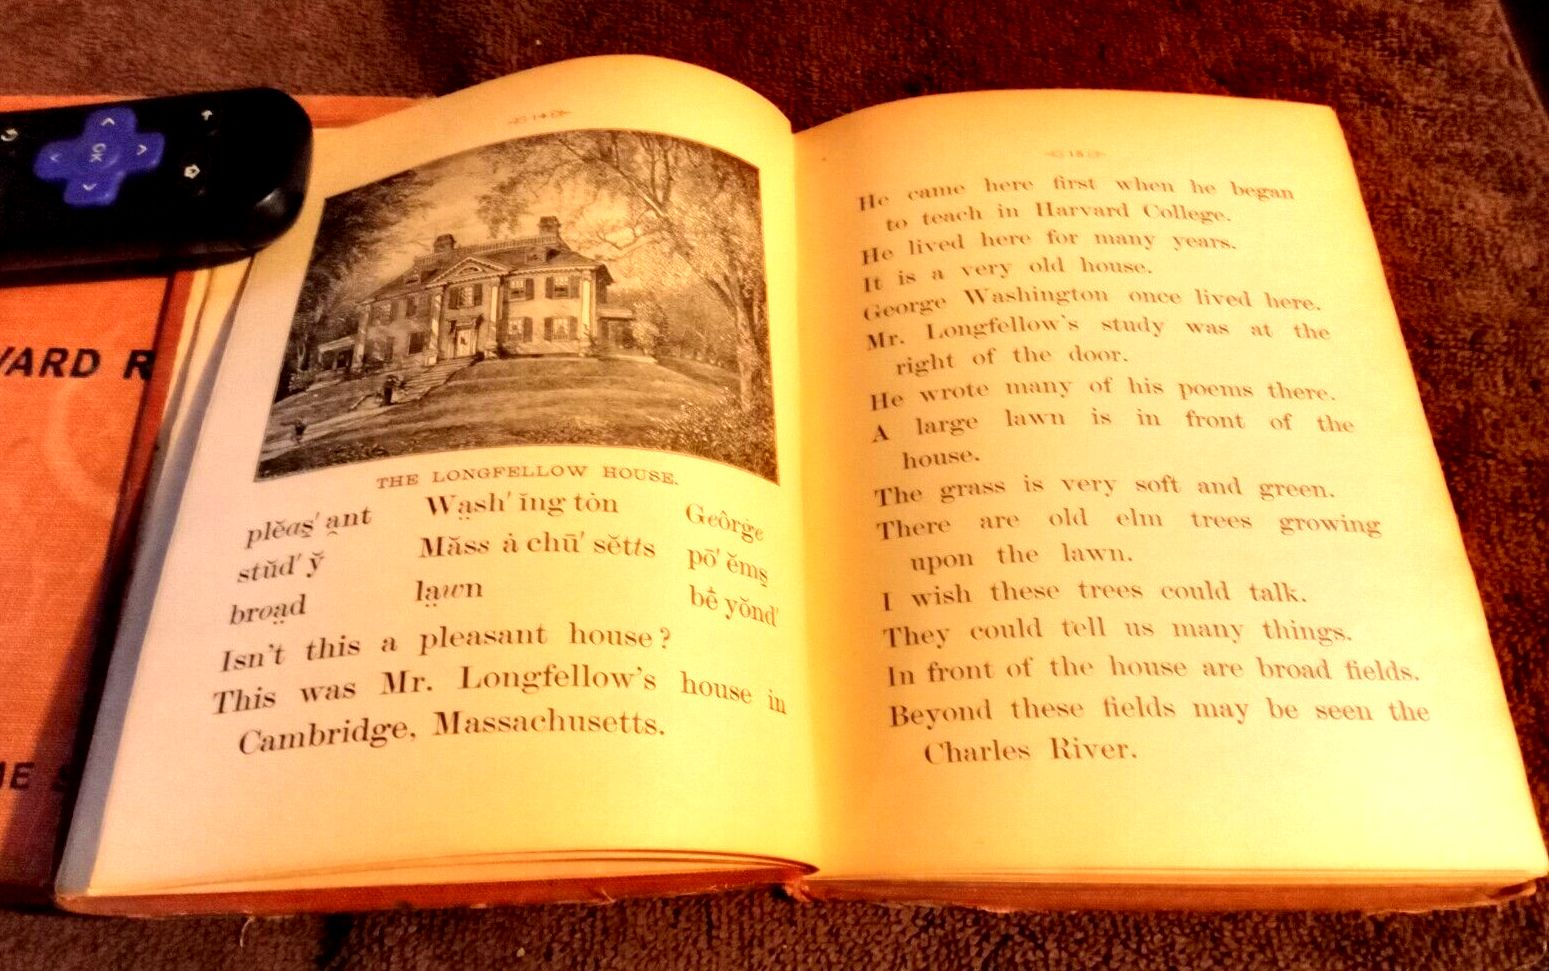 OK
WARD R
ME S
14
THE LONGFELLOW HOUSE.
plĕas̱′ a̤nt Wa̤sh′ ĭng tȯn Ġeôrġe
stŭd′ y̆ Măss ȧ chū′ sĕtts pō′ ĕms̱
broa̤d la̤wn bē̇ yŏnd′
Isn't this a pleasant house?
This was Mr. Longfellow's house in
Cambridge, Massachusetts.
15
He came here first when he began
to teach in Harvard College.
He lived here for many years.
It is a very old house.
George Washington once lived here.
Mr. Longfellow's study was at the
right of the door.
He wrote many of his poems there.
A large lawn is in front of the
house.
The grass is very soft and green.
There are old elm trees growing
upon the lawn.
I wish these trees could talk.
They could tell us many things.
In front of the house are broad fields.
Beyond these fields may be seen the
Charles River.